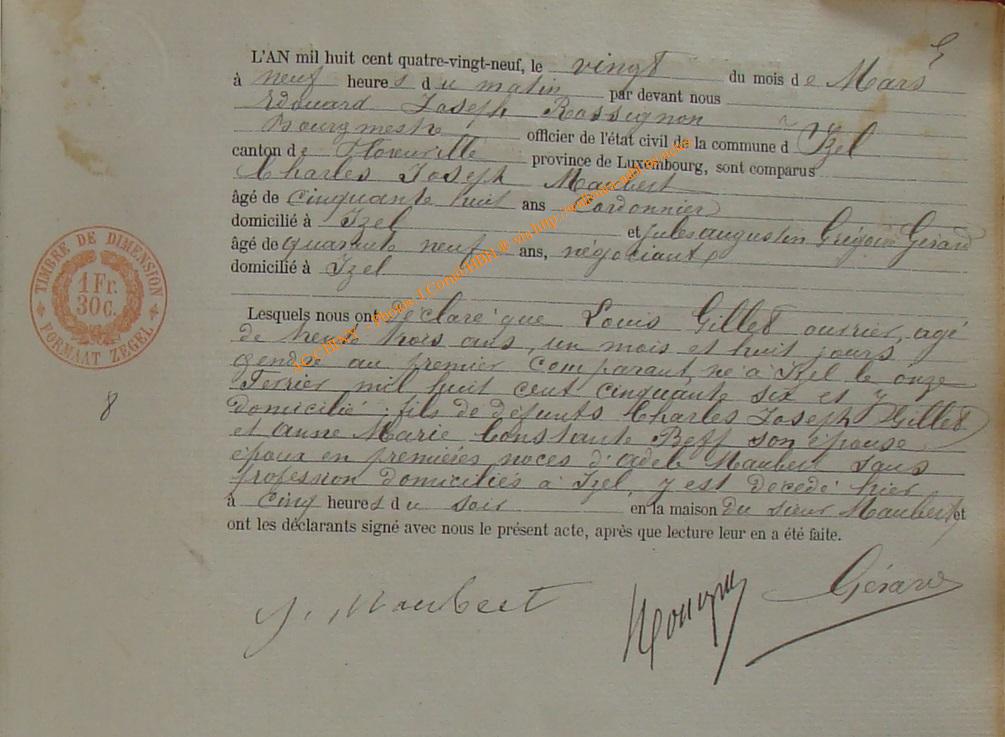 L'AN mil huit cent quatre-vingt-neuf, le vingt du mois de Mars
à neuf heures du matin par devant nous
Edouard Joseph Rossignon
Bourgmestre officier de l'état civil de la commune d'Izel
canton de Florenville province de Luxembourg, sont comparus
Charles Joseph Maubert
âgé de cinquante huit ans Cordonnier
domicilié à Izel et Jules augustin Grégoire Gérard
âgé de quarante neuf ans, négociant
domicilié à Izel
Lesquels nous ont déclaré que Louis Gillet ouvrier, agé
de trente trois ans, un mois et huit jours
gendre au premier comparant, né à Izel le onze
Fevrier mil huit cent cinquante six et y
domicilié ; fils de défunts Charles Joseph Gillet
et Anne Marie Constante Beff son épouse
époux en premières noces d'adele Maubert sans
profession domiciliés à Izel, y est décédé hier
à cinq heures du soir en la maison du sieur Maubert et
ont les déclarants signé avec nous le présent acte, après que lecture leur en a été faite.
TIMBRE DE DIMENSION
1 Fr.
30 c.
FORMAAT ZEGEL
8
J. Maubert
Gérard